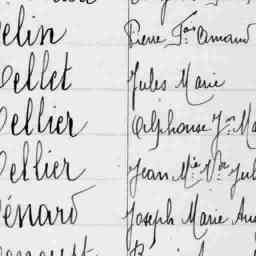 elin Pierre Fois Amand
ellet Jules Marie
ellier Alphonse Jn Ma
ellier Jean Mie Vr Jul
énard Joseph Marie Au